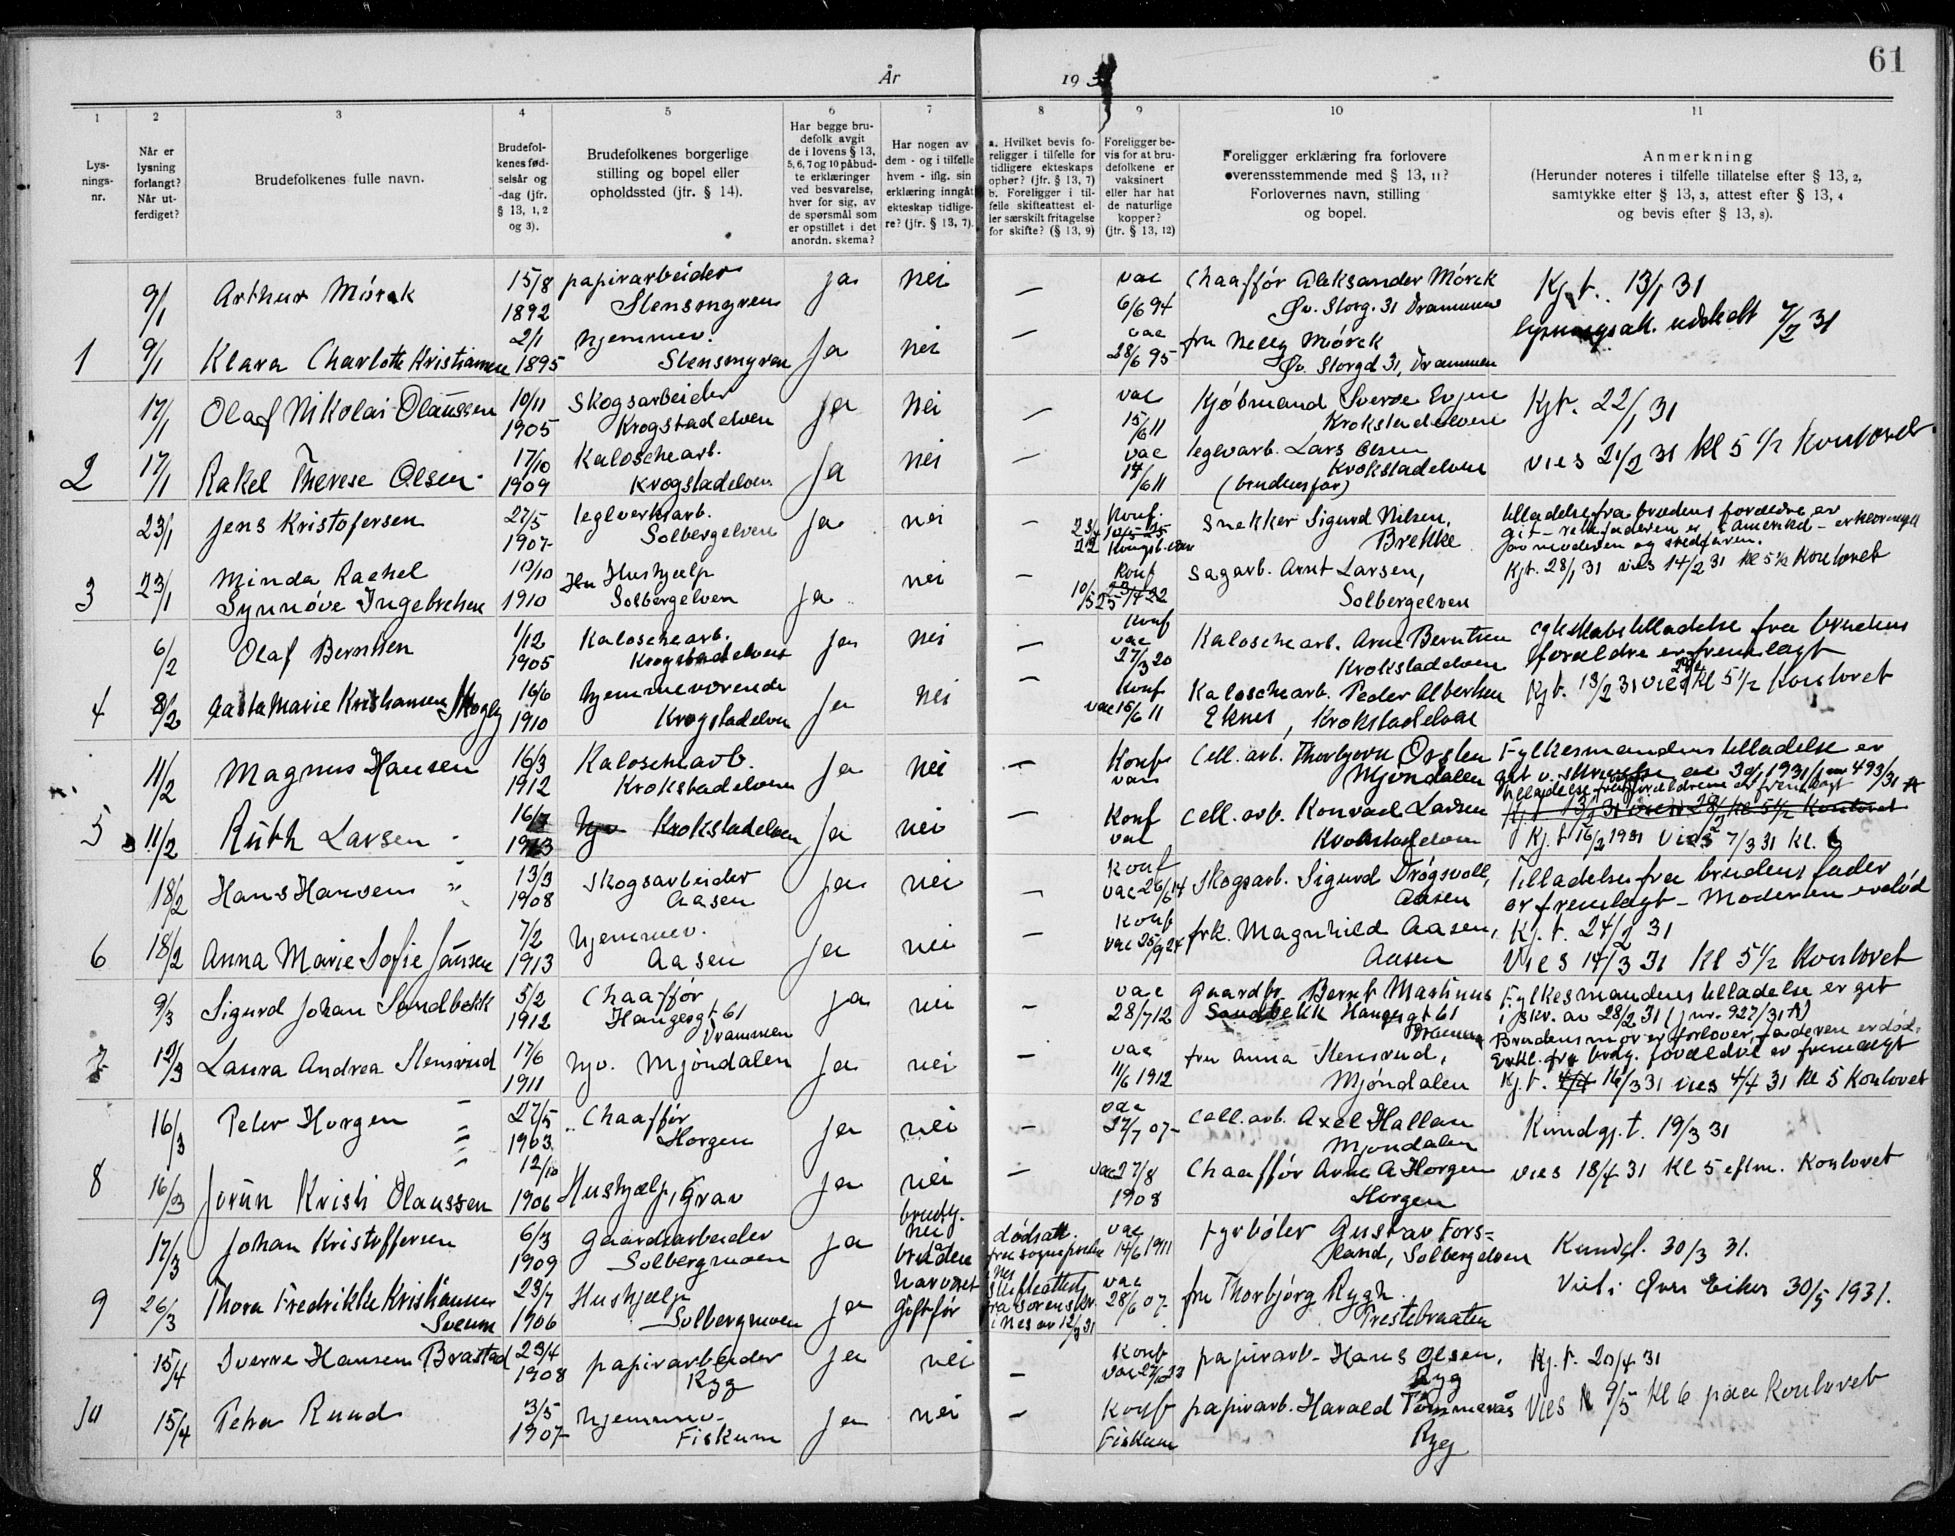 61
År 193
1 2 3 4 5 6 7 8 9 10 11
Lysnings-nr.
Når er lysning forlangt? Når utferdiget?
Brudefolkenes fulle navn.
Brudefolkenes fødselsår og -dag (jfr. § 13, 1, 2 og 3).
Brudefolkenes borgerlige stilling og bopel eller opholdssted (jfr. § 14).
Har begge brudefolk avgit de i lovens § 13, 5, 6, 7 og 10 påbudte erklæringer ved besvarelse, hver for sig, av de spørsmål som er opstillet i det anordn. skema?
Har nogen av dem - og i tilfelle hvem - iflg. sin erklæring inngått ekteskap tidligere? (jfr. § 13, 7).
a. Hvilket bevis foreligger i tilfelle for tidligere ekteskaps ophør? (jfr. § 13, 7) b. Foreligger i tilfelle skifteattest eller særskilt fritagelse for skifte? (§ 13, 9)
Foreligger bevis for at brudefolkene er vaksinert eller har hat de naturlige kopper? (jfr. § 13, 12)
Foreligger erklæring fra forlovere overensstemmende med § 13, 11? Forlovernes navn, stilling og bopel.
Anmerkning (Herunder noteres i tilfelle tillatelse efter § 13, 2, samtykke efter § 13, 3, attest efter § 13, 4 og bevis efter § 13, 8).
9/1 Arthur Mörck 15/8 1892 papirarbeider Stensmyren ja nei — vac 6/6 94 Chaafför Aleksander Mörck Øv. Storg. 31 Drammen Kj. t. 13/1 31
1 9/1 Klara Charlotte Kristiansen 2/1 1895 hjemmev. Stensmyren ja nei — vac 28/6 95 fru Nelly Mörck Øv. Storgd 31, Drammen lysningsatt. utstedt 7/2 31
17/1 Olaf Nikolai Olaussen 10/11 1905 Skogsarbeider Krogstadelven ja nei — vac 15/6 11 Kjöbmand Sverre Evjen Krokstadelven Kjt. 22/1 31
2 17/1 Rakel Therese Olsen 17/10 1909 Kaloschearb. Krogstadelven ja nei — vac 14/6 11 teglvarb. Lars Olsen Krokstadelven (brudens far) vies 21/2 31 kl 5 1/2 Kontoret
23/1 Jens Kristofersen 27/5 1907 teglverksarb. Solbergelven ja nei — Konf. Snekker Sigurd Nilsen, Brekke tilladelse fra brudens forældre er git
3 23/1 Minda Rachel Synnöve Ingebretsen 10/10 1910 Hushjælp Solbergelven ja nei — Konf Sagarb. Arnt Larsen, Solbergelven Kjt. 28/1 31 vies 14/2 31 kl 5 1/2 Kontoret
6/2 Olaf Berntsen 1/12 1905 Kaloschearb. Krogstadelven ja nei — Konf vac 27/3 20 Kaloschearb. Arne Berntsen Krokstadelven egteskabstilladelse fra brudens forældre er fremlagt
4 8/2 Aasta Marie Kristiansen Skogly 16/6 1910 hjemmeværende Krogstadelven ja nei — Konf vac 16/6 11 Kaloschearb. Peder Albertsen Eknes, Krokstadelven Kjt. 13/2 31 vies kl 5 1/2 Kontoret
11/2 Magnus Hansen 16/3 1912 Kaloschearb. Krokstadelven ja nei — Konf vac Cell. arb. Thorbjorn Orslen Mjöndalen Fylkesmandens tilladelse er git v. skrivelse av 30/1 1931 jnr 493/31 A
5 11/2 Ruth Larsen 16/7 1913 hjv Krokstadelven ja nei — Konf vac Cell. arb. Konrad Larsen Krokstadelven tilladelse fra forældrene er fremlagt Kj. t 16/2 1931 Vies 7/3 31 kl. 6
18/2 Hans Hansen 13/3 1908 Skogsarbeider Aasen ja nei — Konf vac 26/6 14 Skogsarb. Sigurd Drögsvoll, Aasen Tilladelse fra brudens fader er fremlagt – Moderen er död
6 18/2 Anna Marie Sofie Jansen 7/2 1913 hjemmev. Aasen ja nei — Konf vac 25/9 24 frk. Magnhild Aasen, Aasen Kj. t. 24/2 31 Vies 14/3 31 kl 5 1/2 Kontoret
9/3 Sigurd Johan Sandbekk 5/2 1912 Chaafför Haugesgt 61 Drammen ja nei — vac 28/7 12 gaardbr. Bernt Martinus Sandbekk Haugesgt 61 Drammen Fylkesmandens tilladelse er git i skr. av 28/2 31 (jnr. 927/31 A)
7 12/3 Laura Andrea Stensrud 17/6 1911 hjv. Mjöndalen ja nei — vac 11/6 1912 fru Anna Stensrud, Mjöndalen Brudens mor er forlover, faderen er död. Erkl. fra brudg. forældre er fremlagt Kj. t. 16/3 31 vies 4/4 31 kl 5 Kontoret
16/3 Peter Horgen 27/5 1903 Chaafför Horgen ja nei — vac 27/7 07 Cell. arb. Axel Hallan Mjöndalen Kundgj. t. 19/3 31
8 16/3 Jorun Kristi Olaussen 12/10 1906 Hushjælp, Grav ja nei — vac 27/8 1908 Chaafför Arne A Horgen Horgen vies 18/4 31 kl 5 eftm. Kontoret
17/3 Johan Kristoffersen 6/3 1909 Gaardsarbeider Solbergmoen ja brudg. nei vac 14/6 1911 Fyrböter Gustav Forsland, Solbergelven Kundgj. 30/3 31.
9 26/3 Thora Fredrikke Kristiansen Sveum 23/7 1906 Hushjælp Solbergmoen ja bruden har vært gift för dödsatt. fra sogneprest i Nes skifteattest fra sorenskr. i Nes av 12/3 31 vac 28/6 07 fru Thorbjörg Rygh. Prestebraaten Viet i Övre Eiker 30/5 1931.
15/4 Sverre Hansen Brastad 23/4 1908 papirarbeider Ryg ja nei — Konf papirarb. Hans Olsen, Ryg Kj. t. 20/4 31
10 15/4 Petra Ruud 3/5 1907 hjemmev. Fiskum ja nei — Konf Fiskum papirarb. Harald Tömmeraas Ryg Vies 9/5 kl 6 paa Kontoret